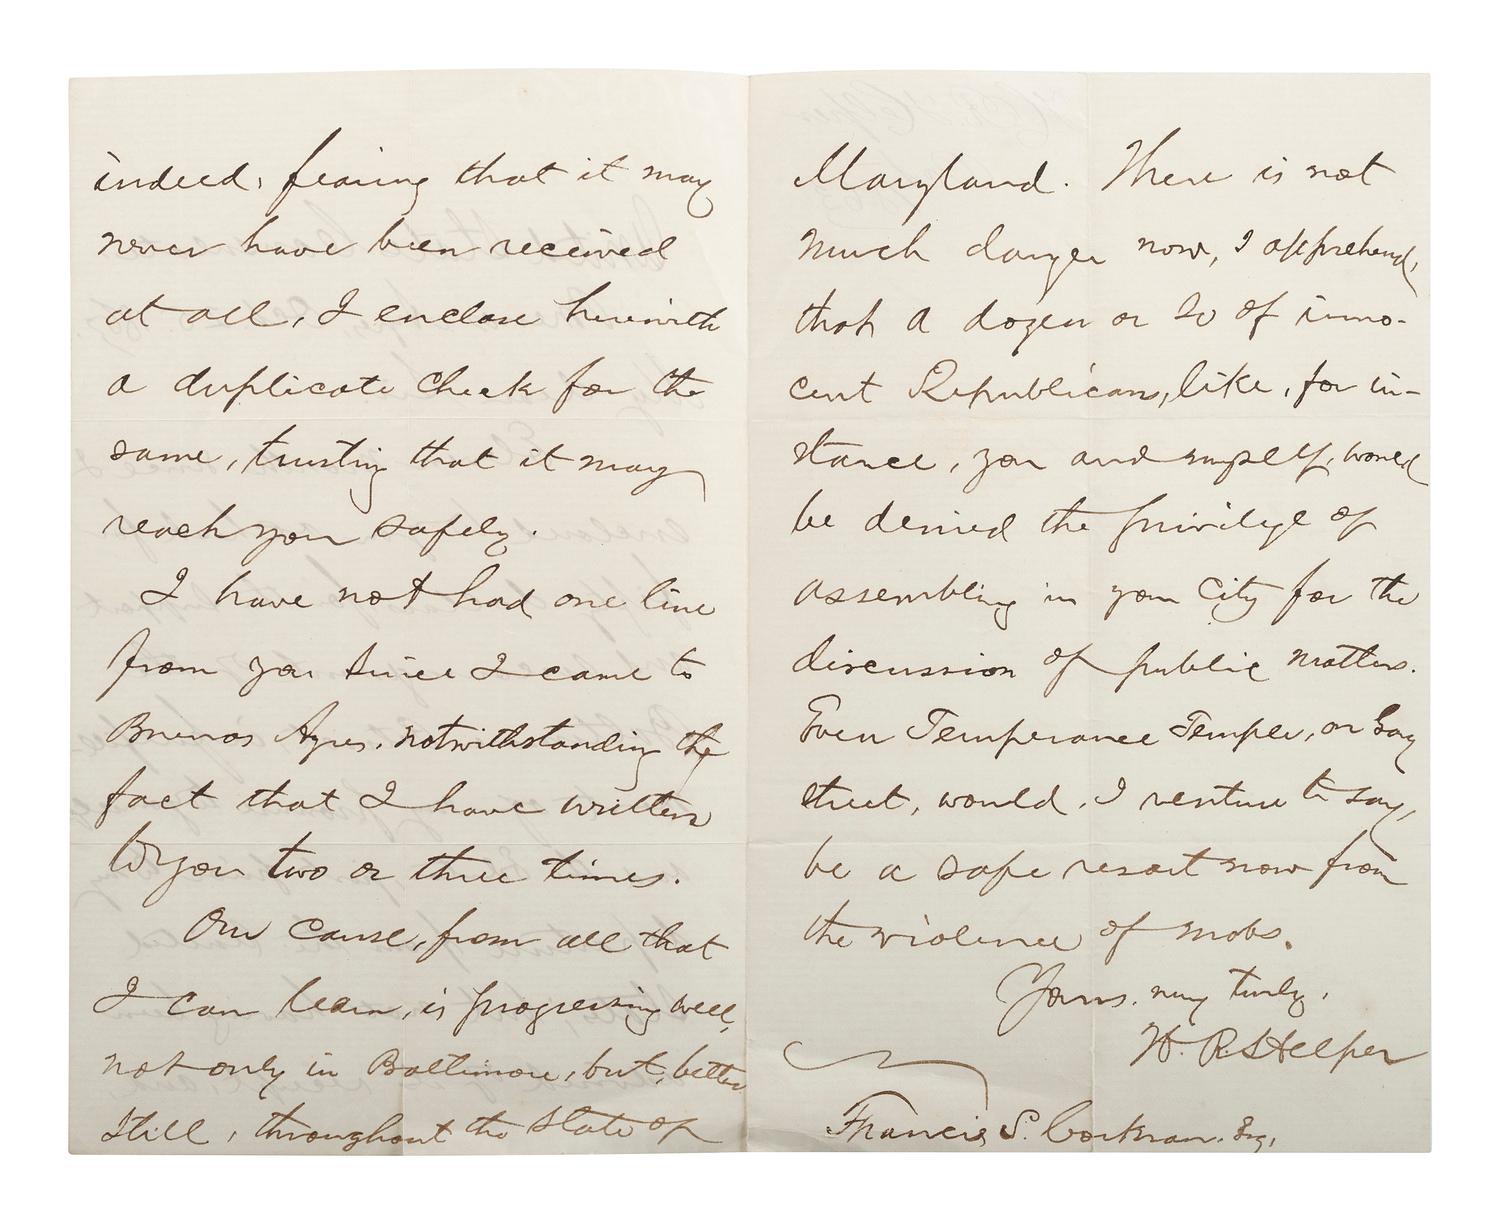 indeed, fearing that it may
never have been received
at all, I enclose herewith
a duplicate check for the
same, trusting that it may
reach you safely.
I have not had one line
from you since I came to
Buenos Ayres, notwithstanding the
fact that I have written
to you two or three times.
Our cause, from all that
I can learn, is progressing well,
not only in Baltimore, but, better
still, throughout the State of
Maryland. There is not
much danger now, I apprehend,
that a dozen or so of inno-
cent Republicans, like, for in-
stance, you and myself, would
be denied the privilege of
assembling in your City for the
discussion of public matters.
Even Temperance Temple, on Gay
street, would, I venture to say,
be a safe resort now from
the violence of mobs.
Yours, very truly,
H. R. Helper
Francis S. Corkran, Esq,